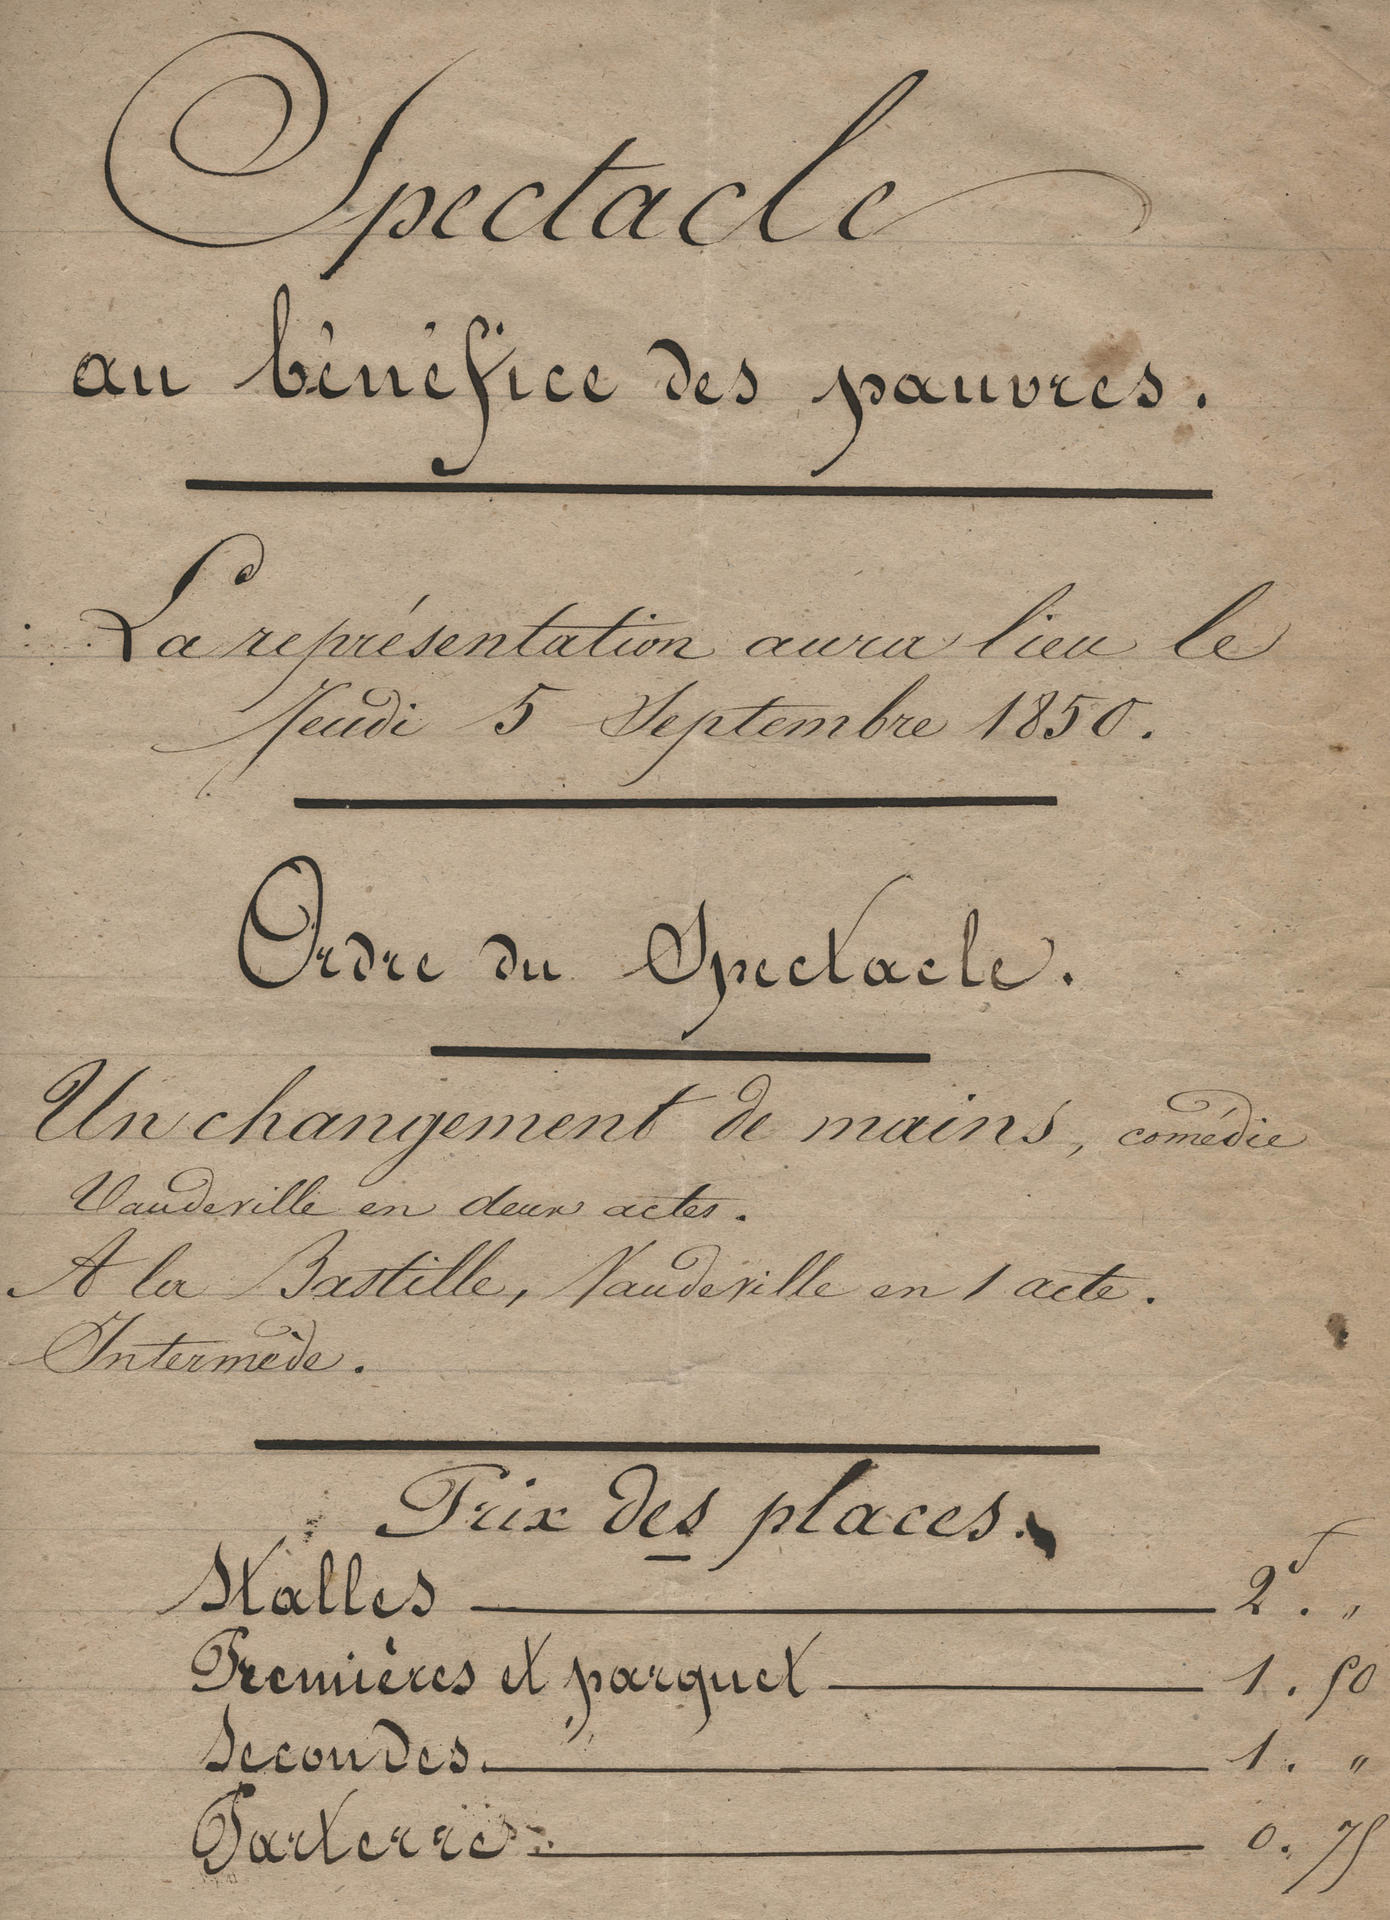 Spectacle
au bénéfice des pauvres.
La représentation aura lieu le
Jeudi 5 Septembre 1850.
Ordre du Spectacle.
Un changement de mains, comédie
Vaudeville en deux actes.
A la Bastille, Vaudeville en 1 acte.
Intermède.
Prix des places.
Stalles 2f. "
Premières et parquet 1. 50
Secondes. " 1. "
Parterre 0. 75